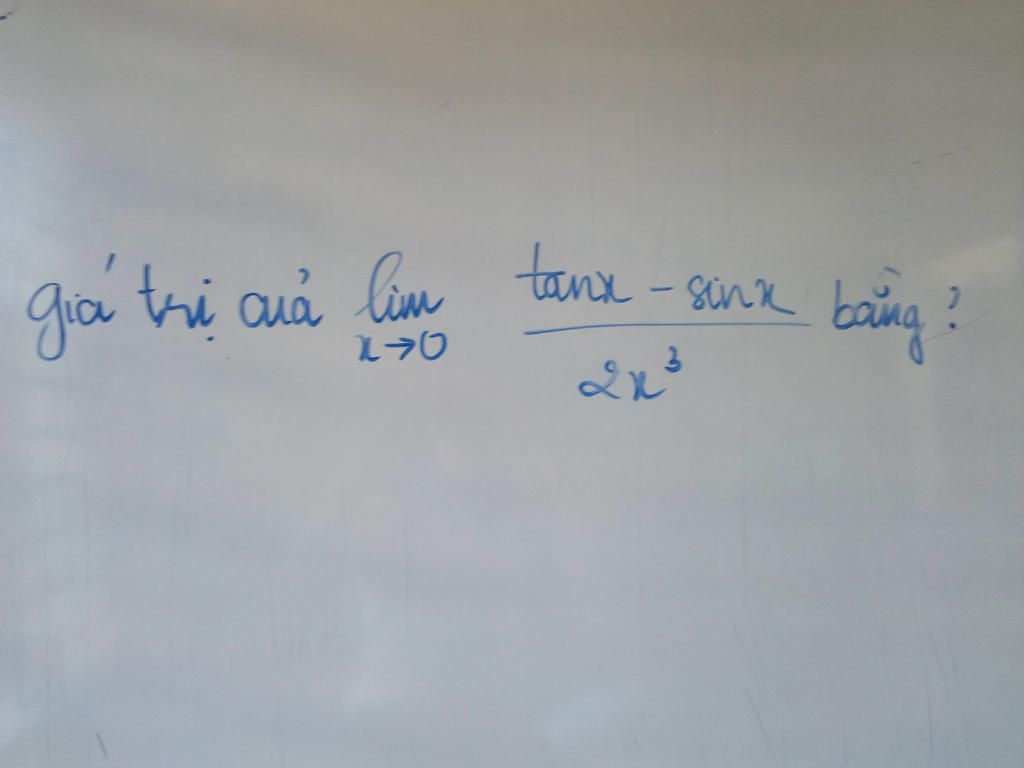 giá trị cuả lim x→0 tanx - sinx / 2x³ bằng?